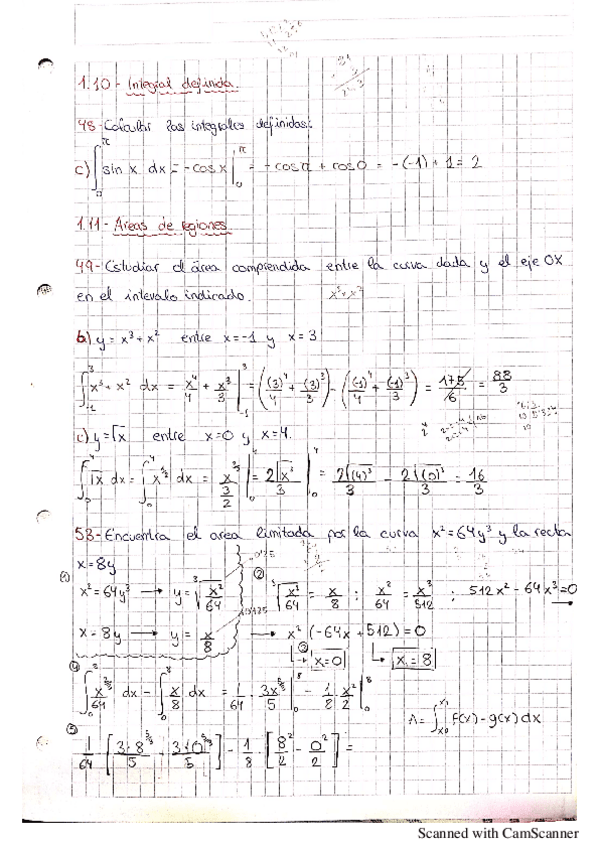 1.10- Integral definida.
48- Calcular las integrales definidas:
c) ∫₀^π sin x dx = -cos x |₀^π = -cos π + cos 0 = -(-1) + 1 = 2
1.11- Areas de regiones
49- Estudiar el área comprendida entre la curva dada y el eje OX
en el intervalo indicado.
x³+x²
b) y = x³ + x² entre x=-1 y x=3
∫₋₁³ x³ + x² dx = x⁴/4 + x³/3 |₋₁³ = ((3)⁴/4 + (3)³/3) - ((-1)⁴/4 + (-1)³/3) = 88/3
c) y = √x entre x=0 y x=4.
∫₀⁴ √x dx = ∫₀⁴ x^½ dx = x^(3/2)/(3/2) |₀⁴ = 2√x³/3 |₀⁴ = 2√(4)³/3 - 2√(0)³/3 = 16/3
53- Encuentra el area limitada por la curva x² = 64y³ y la recta
x = 8y
① x² = 64y³ → y = ³√(x²/64) ② ³√(x²/64) = x/8 ; x²/64 = x³/512 ; 512x² - 64x³ = 0
x = 8y → y = x/8 → x² (-64x + 512) = 0
③ x = 0 x = 8
④ ∫₀⁸ x^(2/3)/64 dx - ∫₀⁸ x/8 dx = 1/64 · 3x^(5/3)/5 |₀⁸ - 1/8 x²/2 |₀⁸
A = ∫ f(x) - g(x) dx
⑤ 1/64 [3·8^(5/3)/5 - 3·0^(5/3)/5] - 1/8 · [8²/2 - 0²/2] =
Scanned with CamScanner